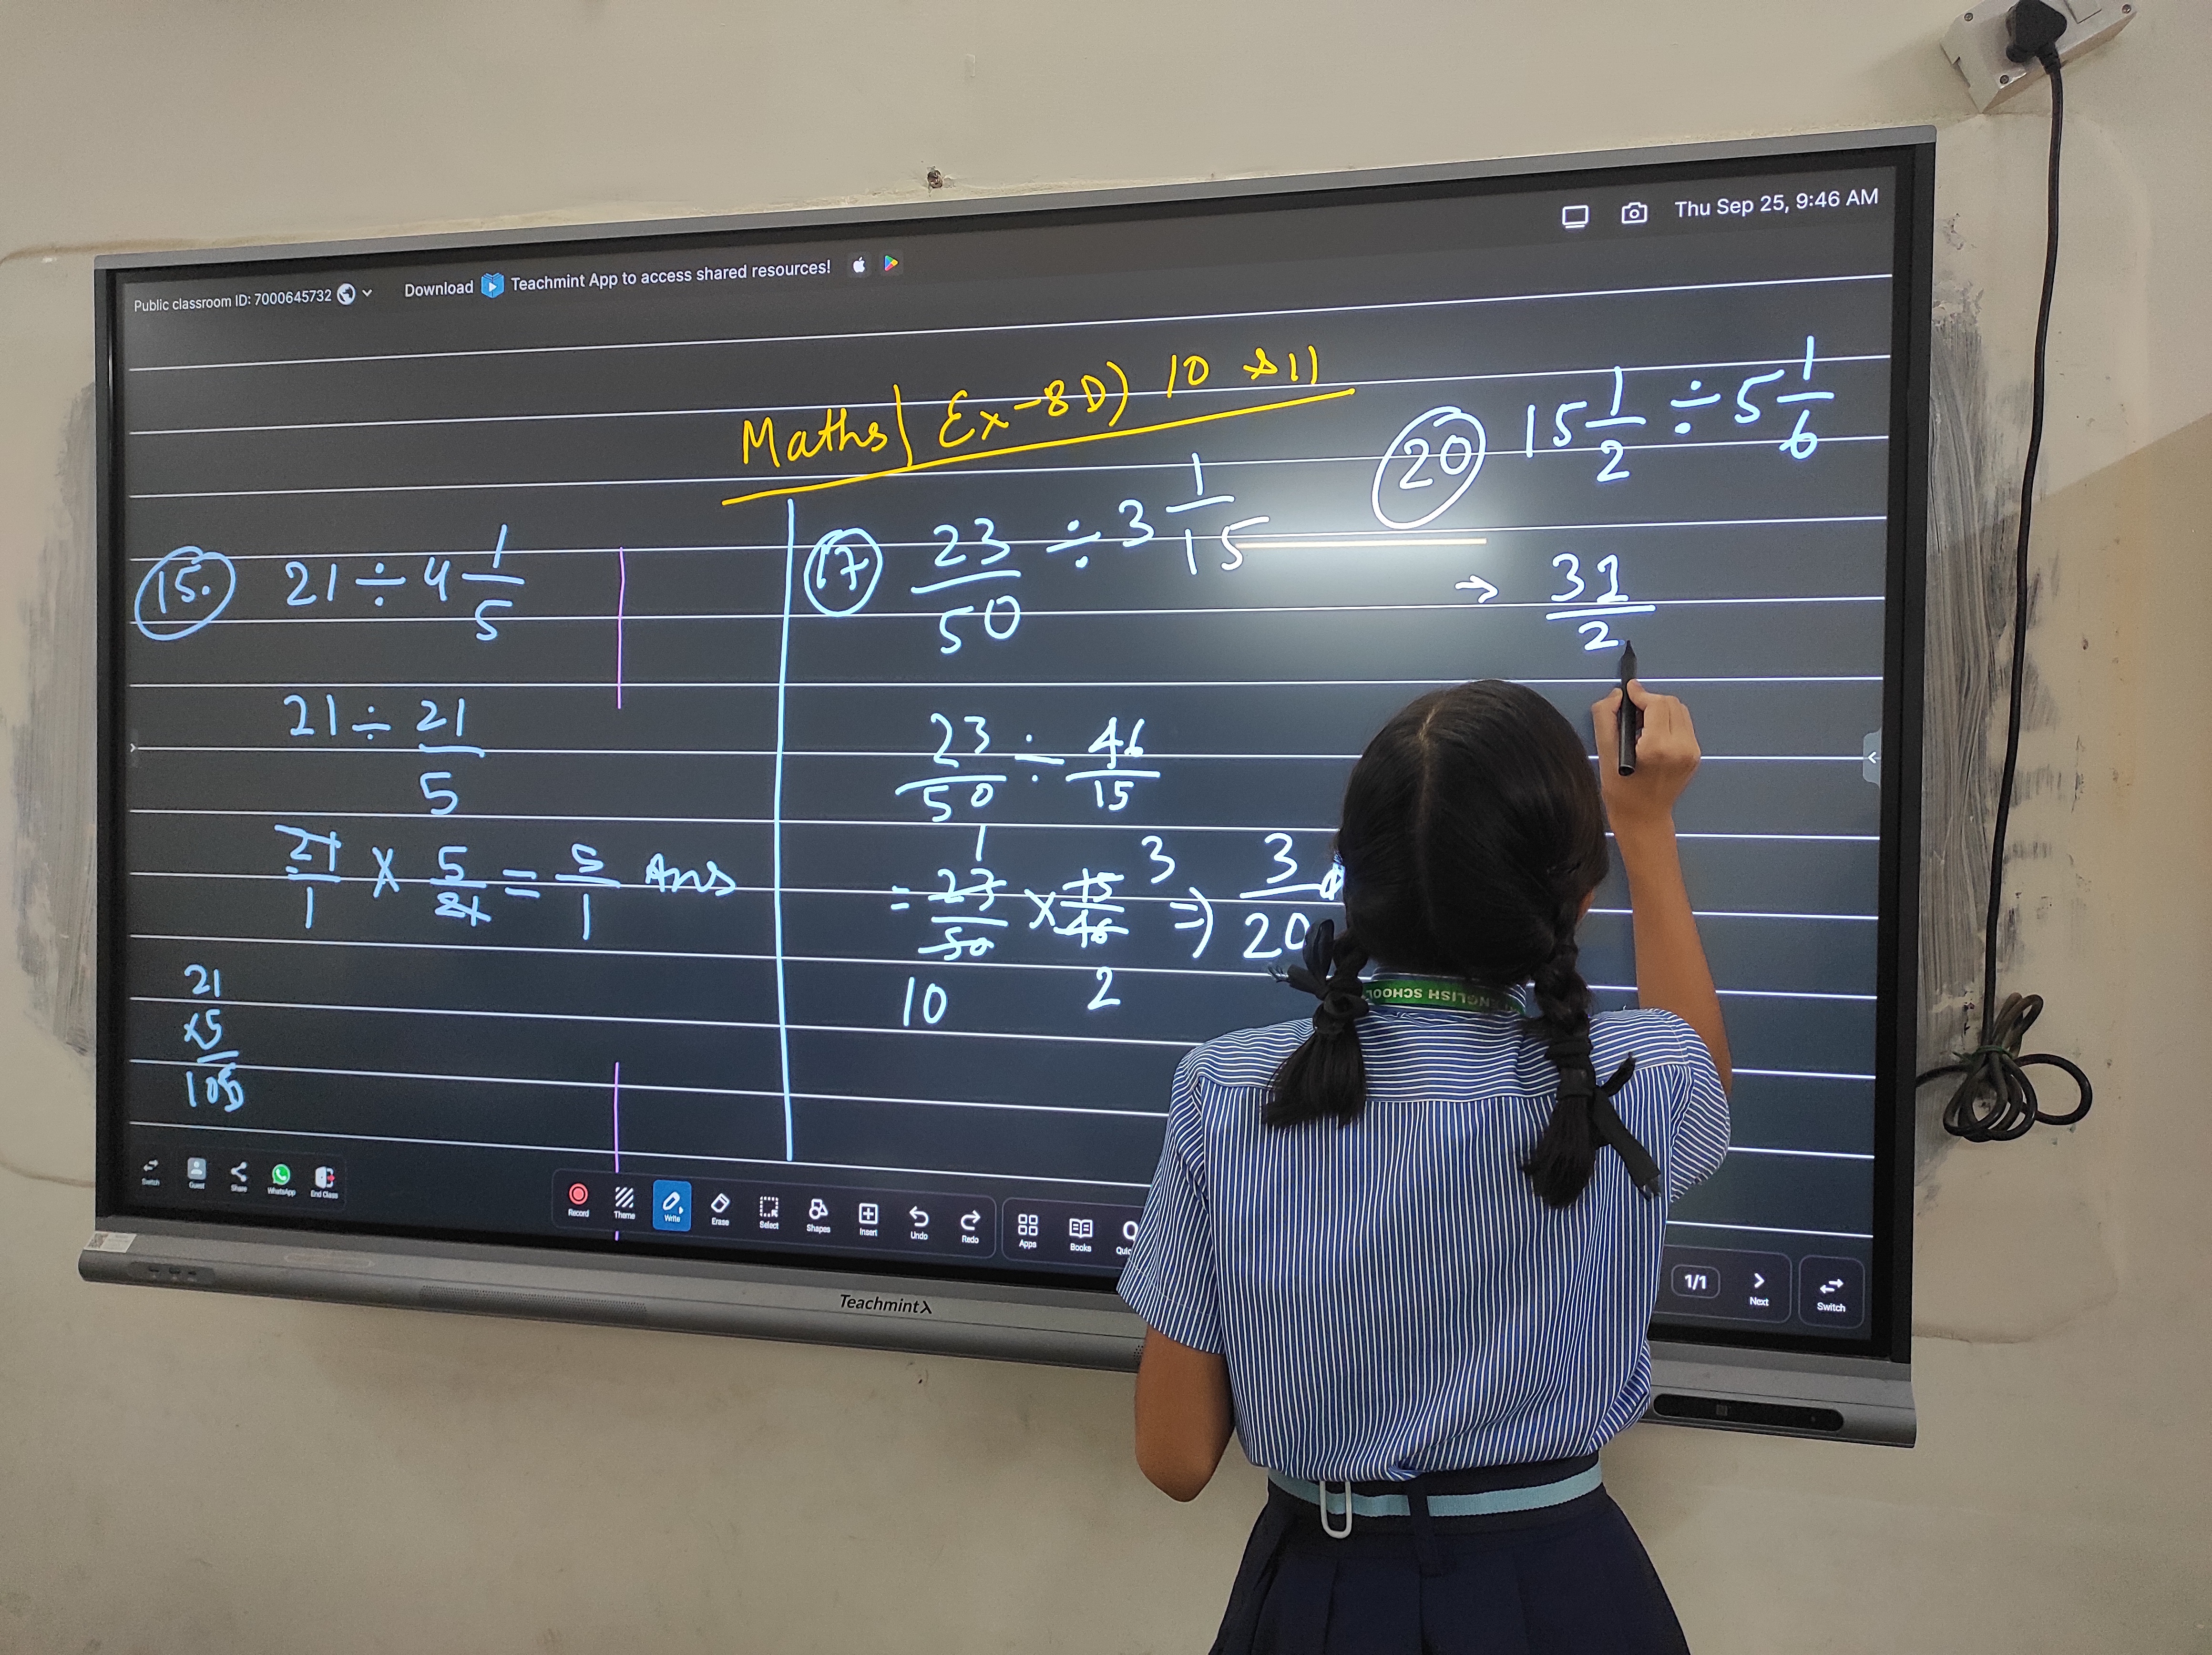 Public classroom ID: 7000645732
Download Teachmint App to access shared resources!
Thu Sep 25, 9:46 AM
Maths| Ex-8D) 10
15. 21 ÷ 4 1/5
21 ÷ 21/5
21/1 × 5/21 = 5/1 Ans
21
×5
105
17 23/50 ÷ 3 1/15
23/50 ÷ 46/15
1 3
= 23/50 × 15/46 => 3/20
10 2
20 15 1/2 ÷ 5 1/6
→ 31/2
ENGLISH SCHOOL
Switch Guest Share WhatsApp End Class
Record Theme Write Erase Select Shapes Insert Undo Redo
Apps Books
1/1 Next Switch
Teachmint